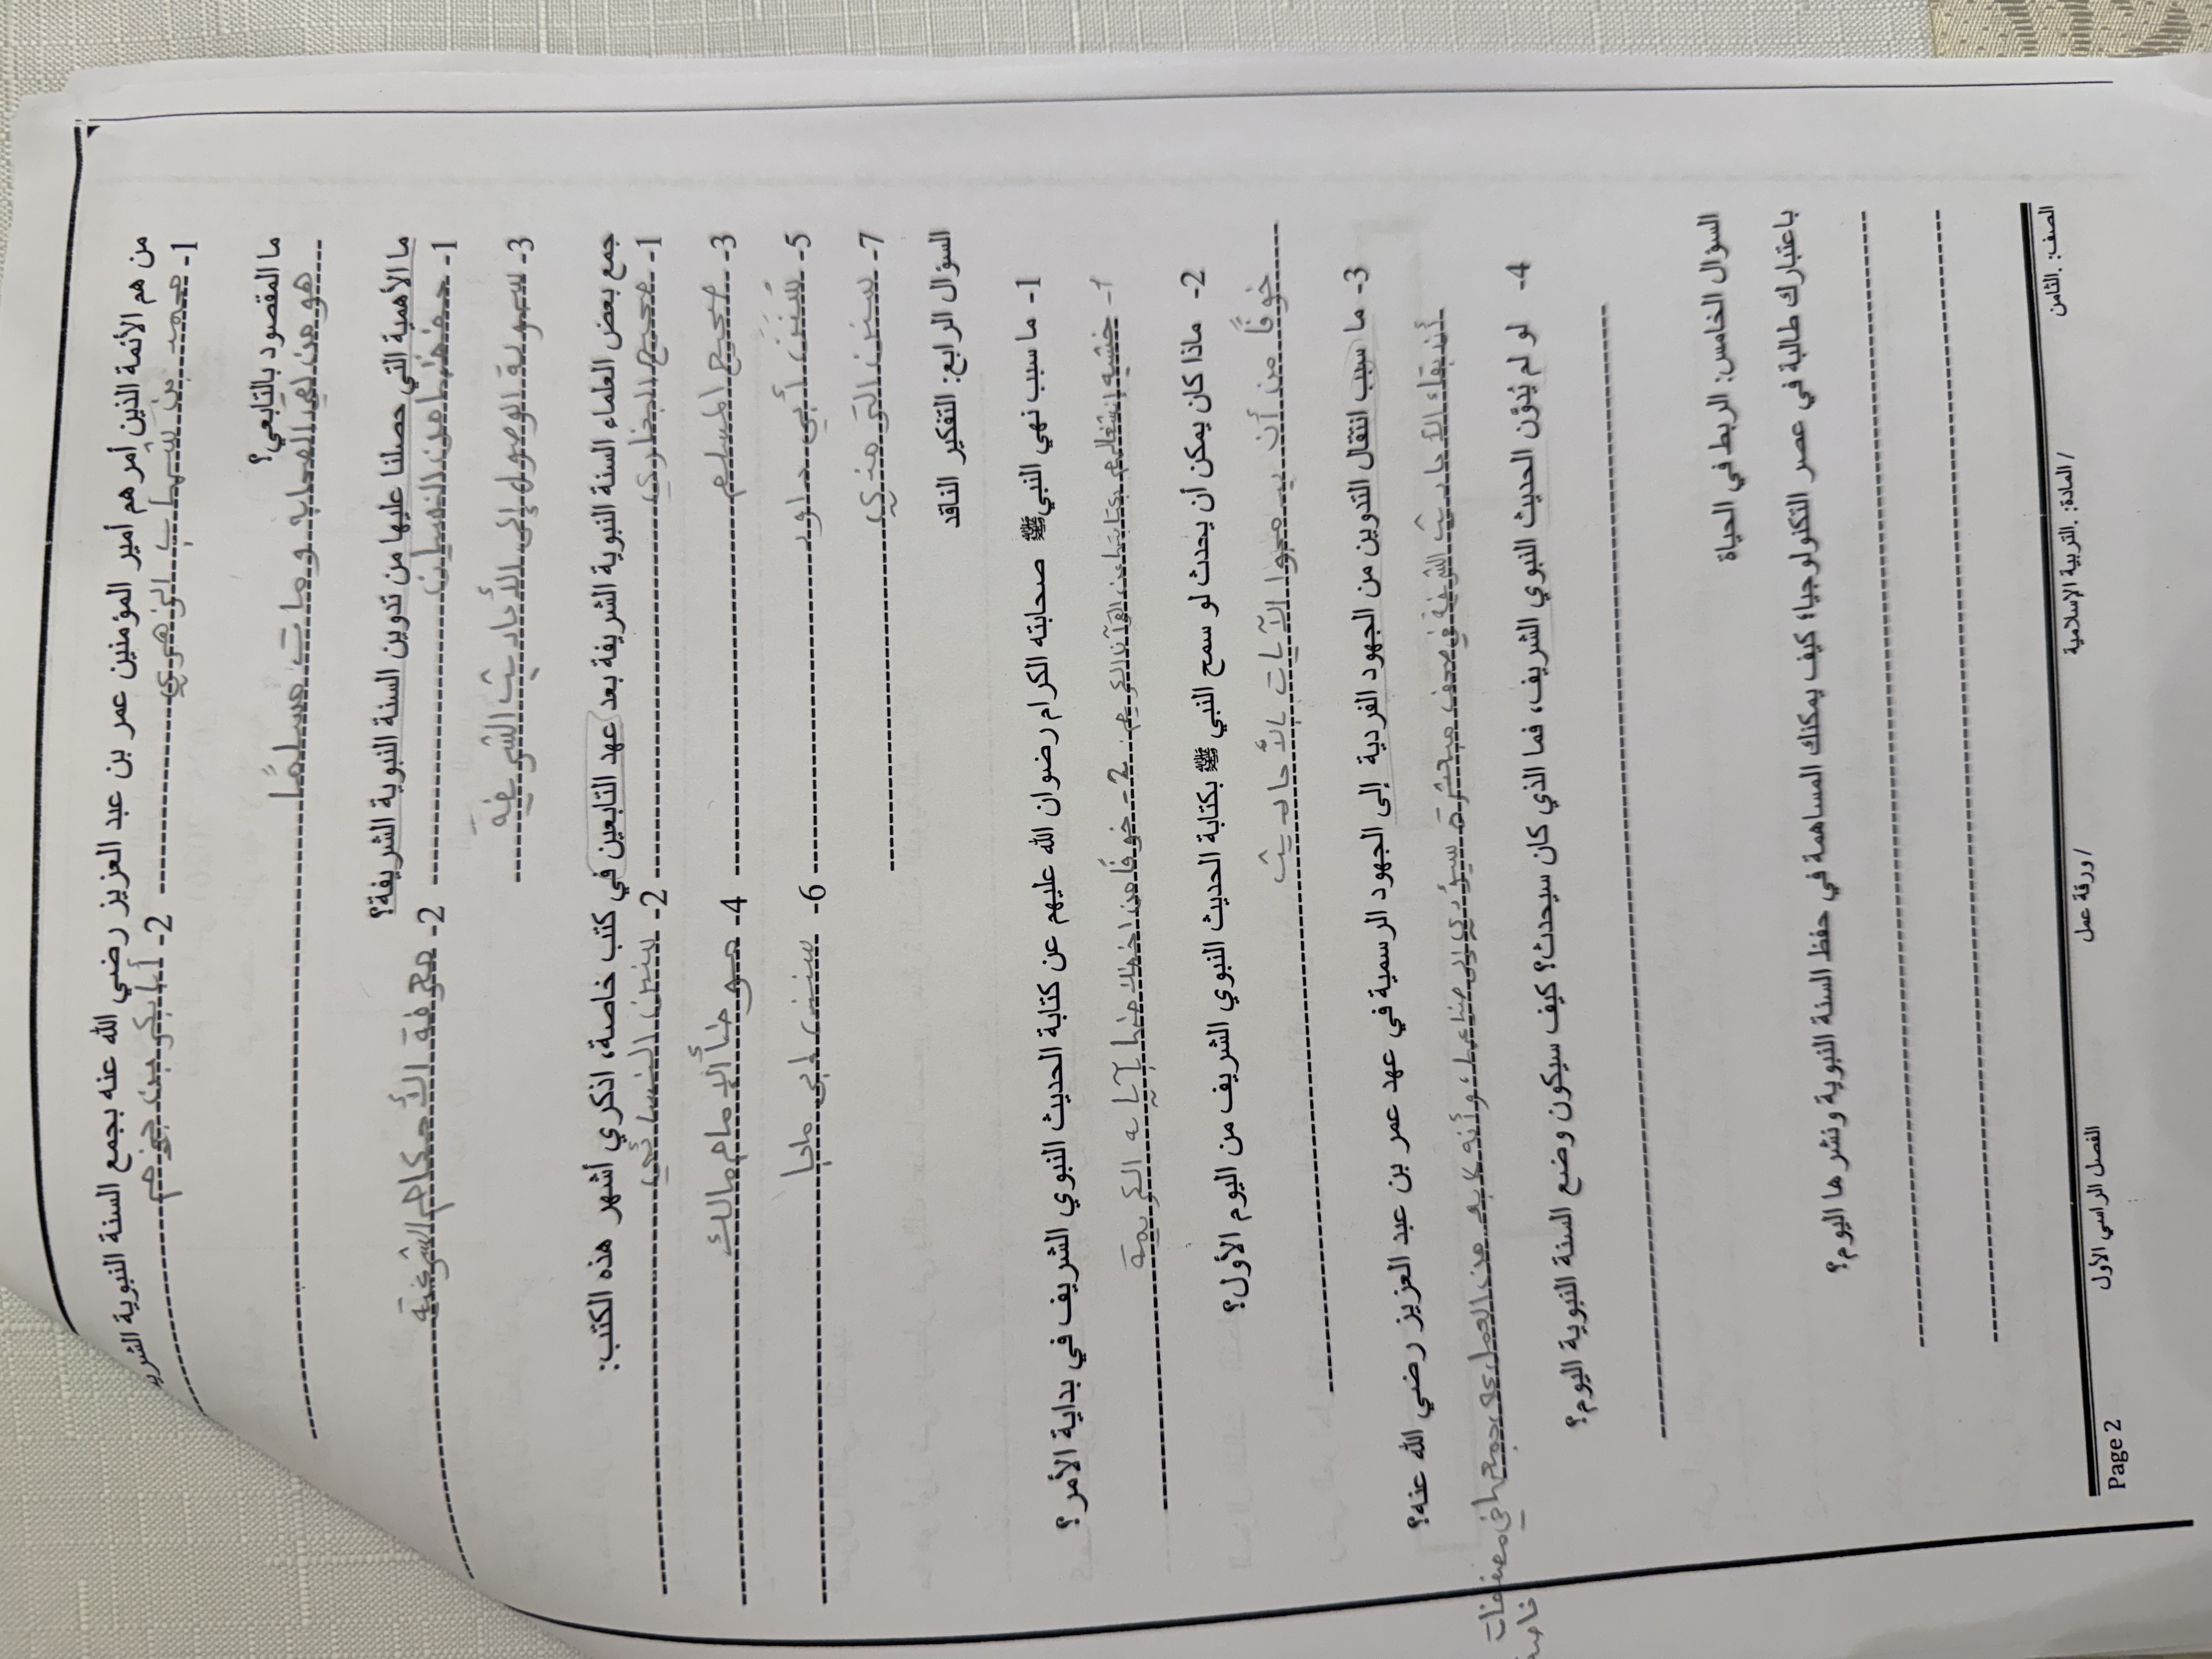 من هم الأئمة الذين أمرهم أمير المؤمنين عمر بن عبد العزيز رضي الله عنه بجمع السنة النبوية
1- محمد بن شهاب الزهري 2- أبا بكر بن حزم
ما المقصود بالتابعي؟
هو من لقي الصحابه و مات مسلمًا
ما الأهمية التي حصلنا عليها من تدوين السنة النبوية الشريفة؟
1- حفظها من النسيان 2- معرفة الأحكام الشرعية
3- سهولة الوصول إلى الأحاديث الشريفة
جمع بعض العلماء السنة النبوية الشريفة بعد عهد التابعين في كتب خاصة، اذكري أشهر هذه الكتب:
1- صحيح البخاري 2- سنن النسائي
3- صحيح المسلم 4- موطأ الإمام مالك
5- سُنَن أبي داود 6- سنن ابي ماجا
7- سنن الترمذي
السؤال الرابع: التفكير الناقد
1- ما سبب نهي النبي ﷺ صحابته الكرام رضوان الله عليهم عن كتابة الحديث النبوي الشريف في بداية الأمر؟
1- خشيه إنشغالهم بكتابتها عن القرآن الكريم. 2- خوفًا من اختلاطها بآياته الكريمة
2- ماذا كان يمكن أن يحدث لو سمح النبي ﷺ بكتابة الحديث النبوي الشريف من اليوم الأول؟
خوفًا من أن يدمجوا الآيات بالأحاديث
3- ما سبب انتقال التدوين من الجهود الفردية إلى الجهود الرسمية في عهد عمر بن عبد العزيز رضي الله عنه؟
أن بقاء الاحاديث الشريفة في صحف مبعثرة سيؤدي إلى ضياعها، وأنه لابد من العمل على جمعها في مصنفات
خاصة
4- لو لم يُدوَّن الحديث النبوي الشريف، فما الذي كان سيحدث؟ كيف سيكون وضع السنة النبوية اليوم؟
السؤال الخامس: الربط في الحياة
باعتبارك طالبة في عصر التكنولوجيا؛ كيف يمكنك المساهمة في حفظ السنة النبوية ونشرها اليوم؟
الصف: .الثامن / المادة: .التربية الإسلامية / ورقة عمل الفصل الراسي الأول Page 2